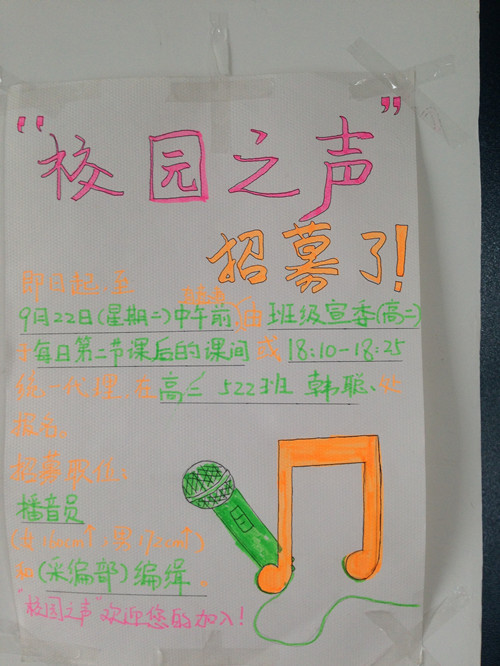 “校园之声”
招募了！
即日起，至
9月22日(星期二)中午前 由 班级宣委(高二)
于每日第二节课后的课间 或 18:10-18:25
统一代理 在高三 522班 韩聪、处
报名。
招募职位：
播音员
和(采编部)编辑。
“校园之声”欢迎您的加入！